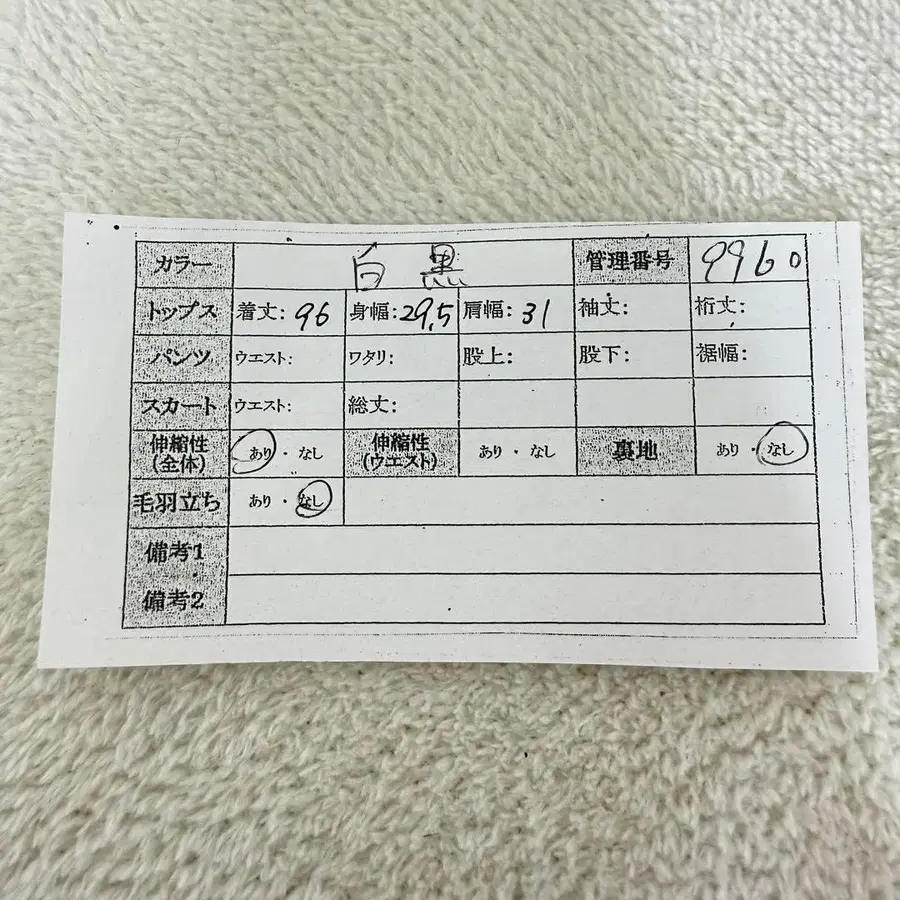 カラー 白 黒 管理番号 9960
トップス 着丈: 96 身幅: 29,5 肩幅: 31 袖丈: 裄丈:
パンツ ウエスト: ワタリ: 股上: 股下: 裾幅:
スカート ウエスト: 総丈:
伸縮性(全体) あり・なし 伸縮性(ウエスト) あり・なし 裏地 あり・なし
毛羽立ち あり・なし
備考1
備考2